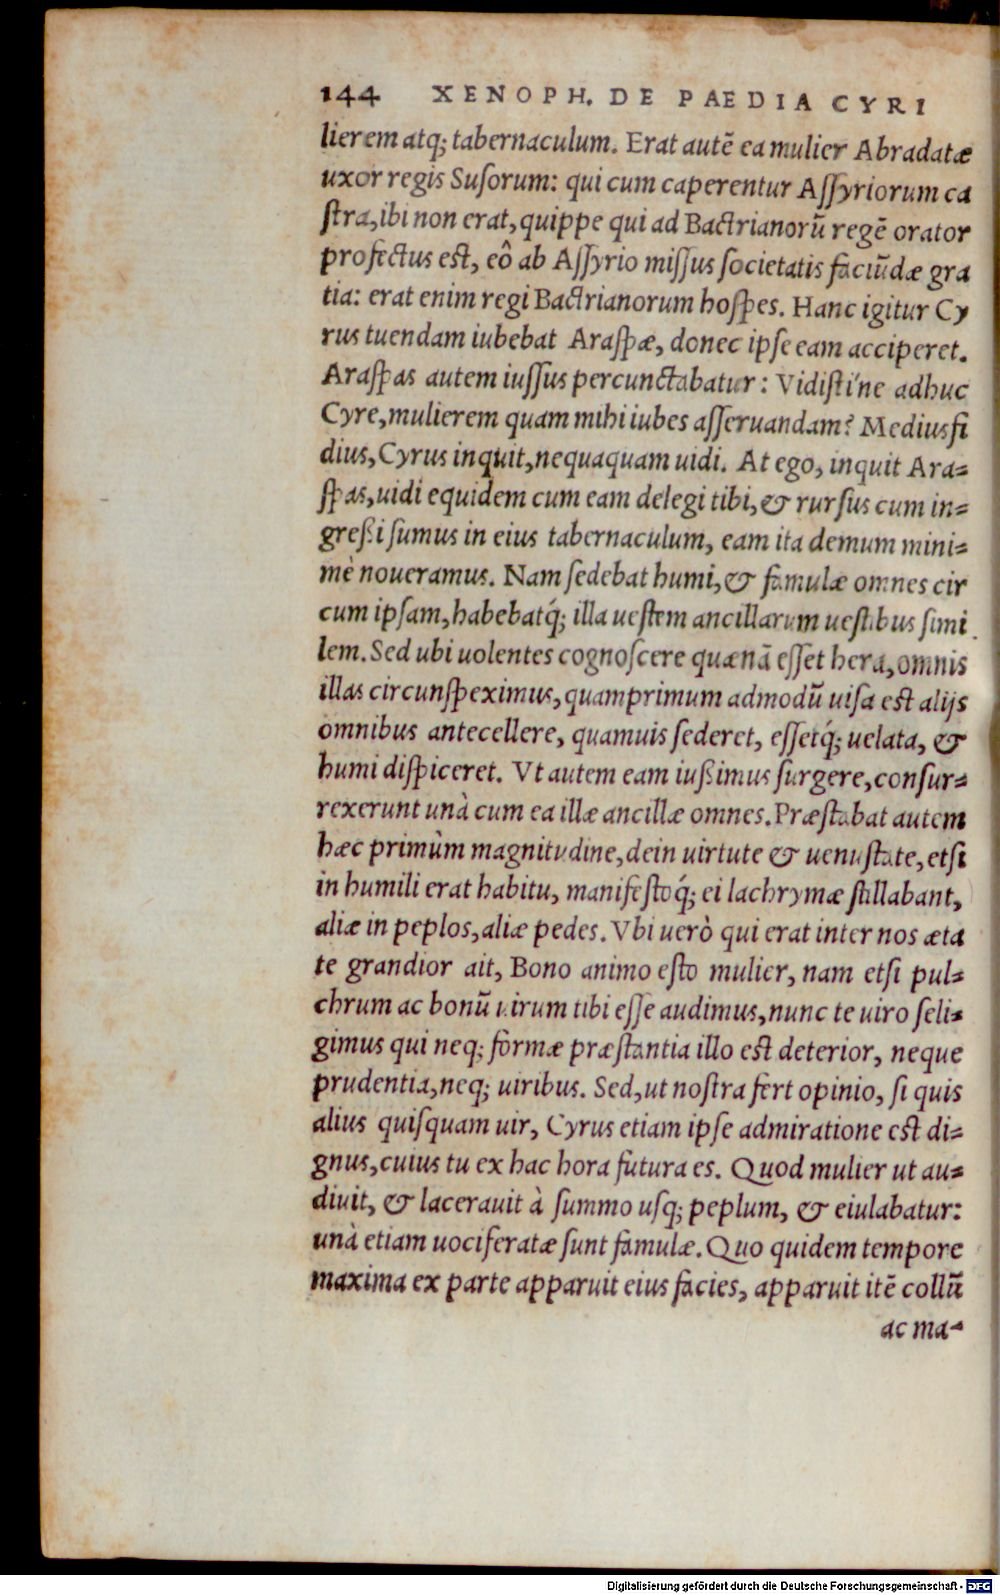 144 XENOPH. DE PAEDIA CYRI
lierem atq; tabernaculum. Erat autē ea mulier Abradatæ
uxor regis Suſorum: qui cum caperentur Aſſyriorum ca
ſtra, ibi non erat, quippe qui ad Bactrianorū regē orator
profectus eſt, eô ab Aſſyrio miſſus ſocietatis faciūdæ gra
tia: erat enim regi Bactrianorum hoſpes. Hanc igitur Cy
rus tuendam iubebat Araſpæ, donec ipſe eam acciperet.
Araſpas autem iuſſus percunctabatur: Vidiſti'ne adhuc
Cyre, mulierem quam mihi iubes aſſeruandam? Mediusfi
dius, Cyrus inquit, nequaquam uidi. At ego, inquit Ara-
ſpas, uidi equidem cum eam delegi tibi, & rurſus cum in-
greßi ſumus in eius tabernaculum, eam ita demum mini-
mè noueramus. Nam ſedebat humi, & famulæ omnes cir
cum ipſam, habebatq́; illa ueſtem ancillarum ueſtibus ſimi
lem. Sed ubi uolentes cognoſcere quænā eſſet hera, omnis
illas circunſpeximus, quamprimum admodū uiſa eſt alijs
omnibus antecellere, quamuis ſederet, eſſetq́; uelata, &
humi diſpiceret. Vt autem eam iußimus ſurgere, conſur-
rexerunt unà cum ea illæ ancillæ omnes. Præſtabat autem
hæc primùm magnitudine, dein uirtute & uenuſtate, etſi
in humili erat habitu, manifeſtoq́; ei lachrymæ ſtillabant,
aliæ in peplos, aliæ pedes. Vbi uerò qui erat inter nos æta
te grandior ait, Bono animo eſto mulier, nam etſi pul-
chrum ac bonū uirum tibi eſſe audimus, nunc te uiro ſeli-
gimus qui neq; formæ præſtantia illo eſt deterior, neque
prudentia, neq; uiribus. Sed, ut noſtra fert opinio, ſi quis
alius quiſquam uir, Cyrus etiam ipſe admiratione eſt di-
gnus, cuius tu ex hac hora futura es. Quod mulier ut au-
diuit, & lacerauit à ſummo uſq; peplum, & eiulabatur:
unà etiam uociferatæ ſunt famulæ. Quo quidem tempore
maxima ex parte apparuit eius facies, apparuit itē collū
ac ma-
Digitalisierung gefördert durch die Deutsche Forschungsgemeinschaft - DFG